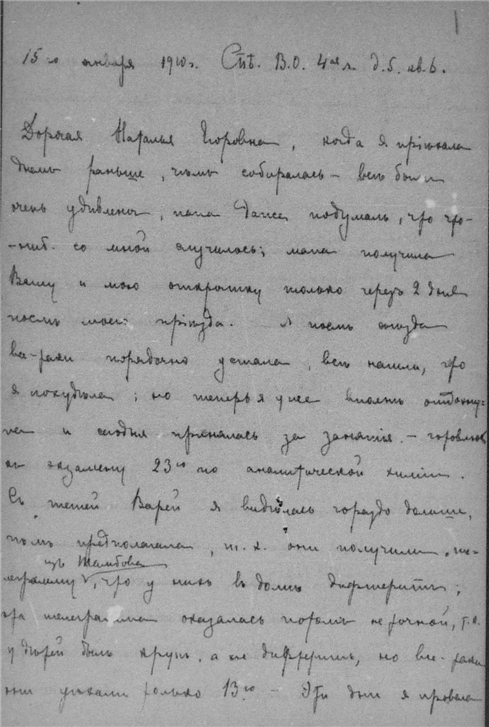 15го января 1910 г. Спб. В.О. 4ая л. д. 5. кв. 6.
Дорогая Наталья Егоровна, когда я пріѣхала
днемъ раньше, чѣмъ собиралась – всѣ были
очень удивлены, папа даже подумалъ, что что-
-ниб. со мной случилось; мама получила
Вашу и мою открытку только черезъ 2 дня
послѣ моего пріѣзда. Я послѣ
все-таки порядочно устала, всѣ нашли, что
я похудѣла; но теперь я уже вполнѣ отдохну-
ла и сегодня принялась за занятія. – готовлюсь
къ экзамену 23го по аналитической химіи.
Съ тетей Варей я видѣлась гораздо дольше,
чѣмъ предполагала, т. к. они получили те-
изъ Тамбова
леграмму V, что у нихъ въ домѣ дифтеритъ;
эта телеграмма оказалась потомъ не точной, т. к.
у дѣтей былъ крупъ, а не дифтеритъ, но все-таки
они уѣхали только 13го – Эти дни я провела